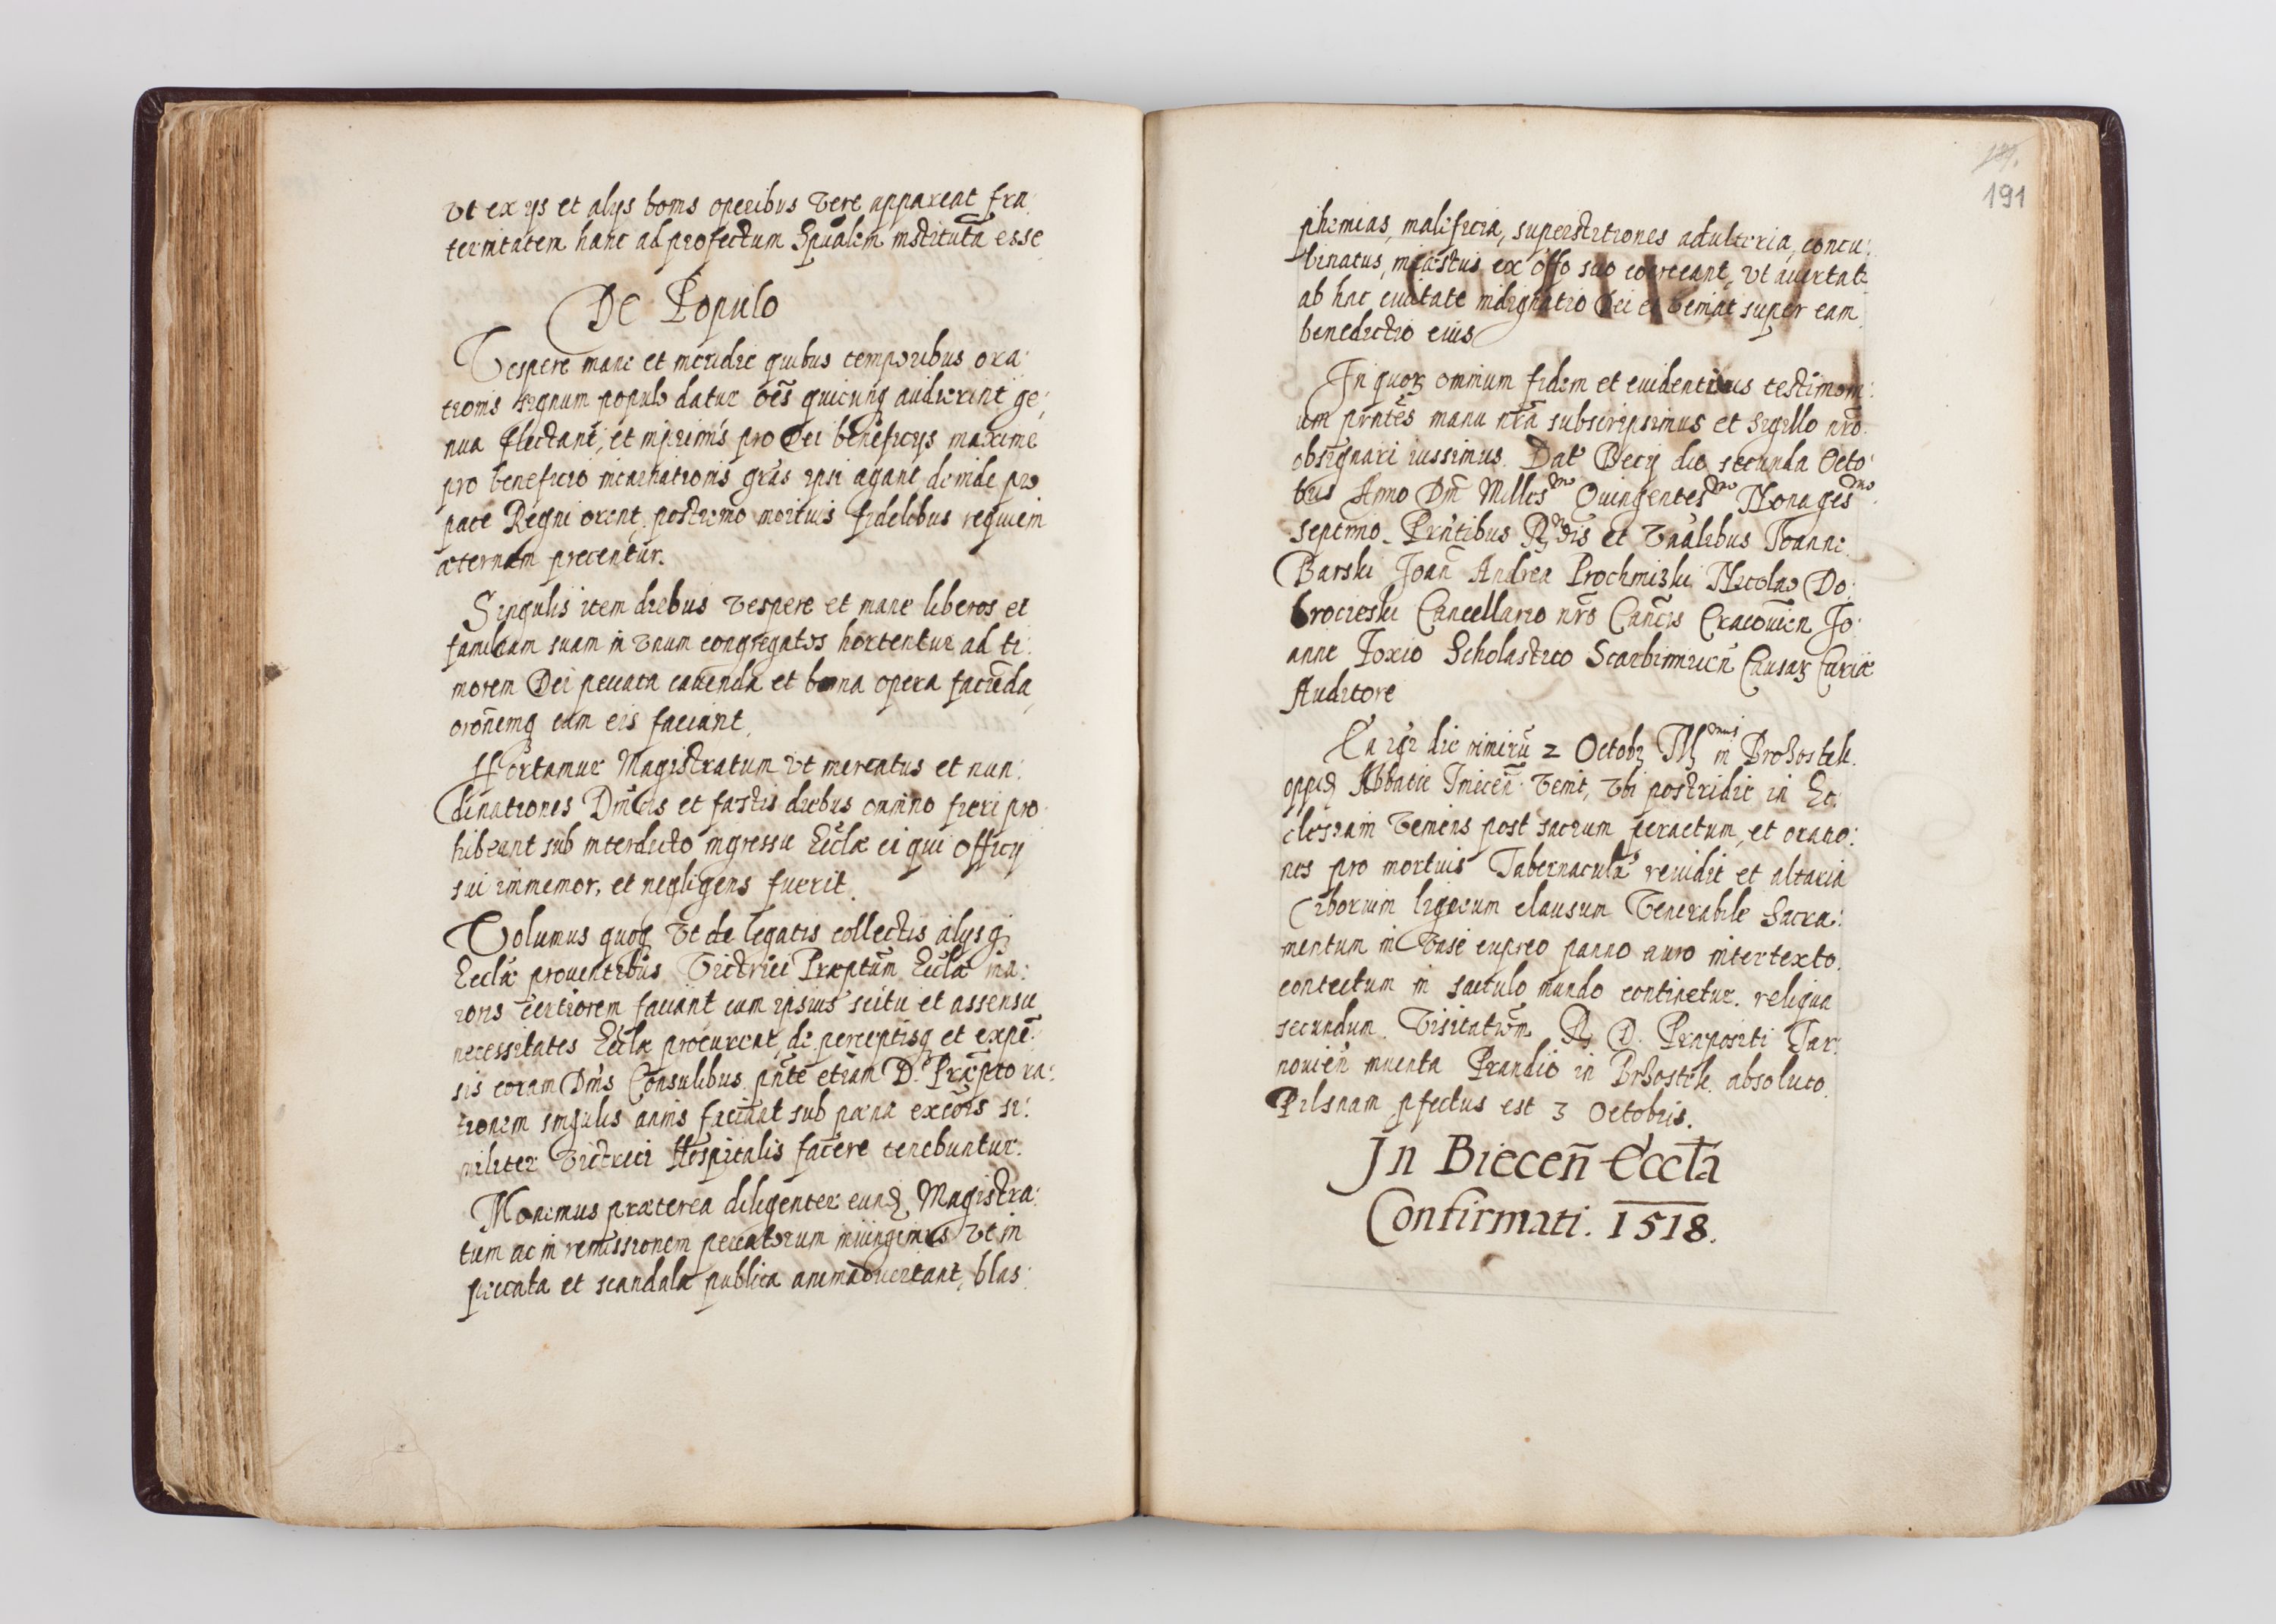 vt ex ijs et alijs bonis operibus vere appareat fra:
ternitatem hanc ad profectum Spualem institutã esse
De Populo
Vespere mane et meridie quibus temporibus ora:
tionis signum populo datur oẽs quicunq audierint ge:
nua flectant, et inprimis pro Dei beneficijs maxime
pro beneficio incarnationis grãs ipsi agant deinde pro
pace Regni orent, postremo mortuis fidelibus requiem
æternam precentur.
Singulis item diebus vespere et mane liberos et
familiam suam in vnum congregatos hortentur ad ti:
morem Dei peccata cavenda et bona opera faciẽda,
orõnemq cum eis faciant.
Hortamur Magistratum vt mercatus et nun:
dinationes Dnicis et festis diebus omnino fieri pro
hibeant sub interdicto ingressu Ecclæ ei qui officij
sui immemor, et negligens fuerit.
Volumus quoq vt de legatis collectis alijsq
Ecclæ proventibus Victrici Præptum Ecclæ ma:
ioris certiorem faciant cum ipsius scitu et assensu
necessitates Ecclæ procurent, de perceptisq et expẽ:
sis coram Dnis Consulibus pñte etiam D. Præpto ra:
tionem singulis annis faciant sub pæna excõis si:
militer Victrici Hospitalis facere tenebuntur.
Monemus præterea diligenter eund Magistra:
tum ac in remissionem peccatorum iniungimus vt in
peccata et scandala publica animadvertant, blas:
191
phemias, maleficia, superstitiones adulteria, concu:
binatus, incæstus ex offo suo coerceant, vt avertat
ab hac civitate indignatio Dei et veniat super eam
benedictio eius
In quoꝝ omnium fidem et evidentius testimoni:
um pñtes manu nrã subscripsimus et sigillo nrõ
obsignari iussimus. Dat Becij die secunda Octo:
bris Anno Dnĩ Milles.mo Quingentes.mo Nonages.mo
septimo. Pñtibus Rndis et Vnãlibus Joanne
Barski Joañ Andrea Prochniʒki Nicolao Do:
brocieski Cancellario nrõ Cancis Cracovien Jo:
anne Foxio Scholastico Scarbimiricñ Causaꝝ Curiæ
Auditore
Ea ipsa die nimirũ 2 Octobʒ Illmus in Broʒostek
oppid Abbatie Tinicen̄ venit, vbi postridie in Ec:
clesiam veniens post sacrum peractum, et oratio:
nes pro mortuis Tabernaculũ revidit et altaria
Ciborium ligneum clausum Venerabile Sacra:
mentum in vase cupreo panno auro intertexto
contectum in sacculo mundo continetur. reliqua
secundum Visitatiõm R D. Præpositi Tar:
novien̄ inventa Prandio in Brʒostek absoluto
Pilsnam pfectus est 3 Octobris.
In Biecen̄ Eccła
Confirmati. 1518.